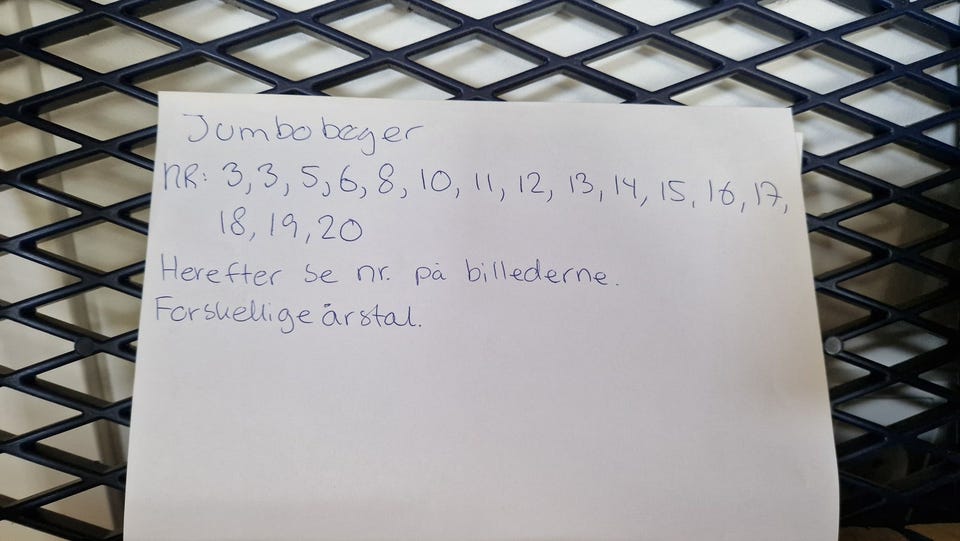 Jumbobøger
NR: 3, 3, 5, 6, 8, 10, 11, 12, 13, 14, 15, 16, 17,
18, 19, 20
Herefter se nr. på billederne.
Forskellige årstal.